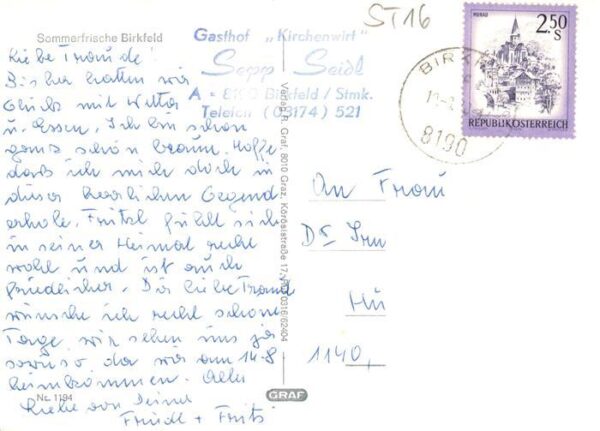 Sommerfrische Birkfeld
Gasthof „Kirchenwirt"
Sepp Seidl
A - 8190 Birkfeld / Stmk.
Telefon (03174) 521
ST 16
MURAU
2.50
S
REPUBLIK ÖSTERREICH
BIRK
8190
Liebe Traude!
Bisher hatten wir
Glück mit Wetter
u. Essen. Ich bin schon
ganz schön braun. Hoffe
daß ich mich doch in
dieser herrlichen Gegend
erhole. Fritzl fühlt sich
in seiner Heimat recht
wohl und ist auch
friedlicher. Dir liebe Traude
wünsche ich recht schöne
Tage, wir sehen uns ja
sowieso da wir am 14.8
heimkommen. Alles
Liebe von Deiner
Friedl + Fritz
An Frau
Dr
1140,
Verlag R. Graf, 8010 Graz, Körösistraße 17, 0316/62404
Nr. 1194
GRAF